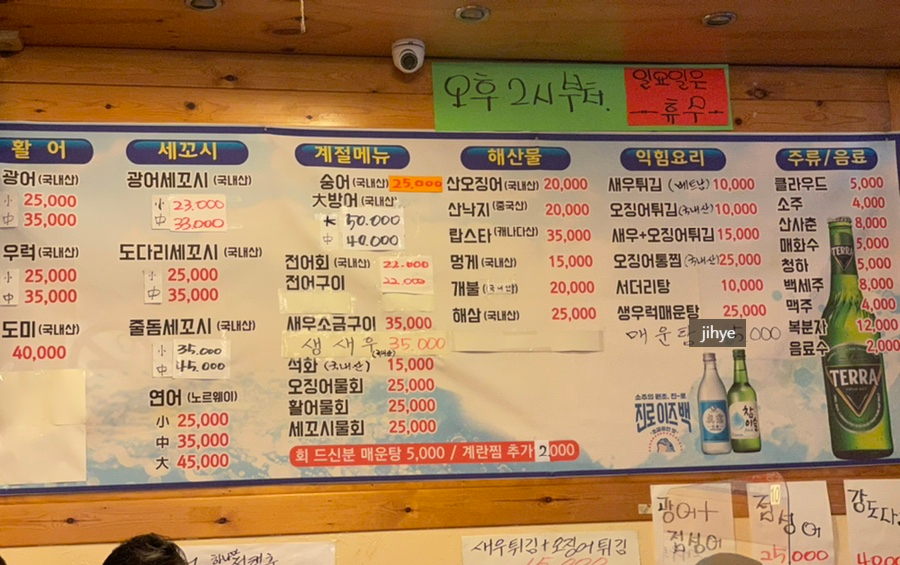 오후 2시부터.
일요일은
휴무
활어
광어 (국내산)
小 25,000
中 35,000
우럭 (국내산)
小 25,000
中 35,000
도미 (국내산)
40,000
세꼬시
광어세꼬시 (국내산)
小 23.000
中 33.000
도다리세꼬시 (국내산)
小 25,000
中 35,000
줄돔세꼬시 (국내산)
小 35.000
中 45.000
연어 (노르웨이)
小 25,000
中 35,000
大 45,000
계절메뉴
숭어 (국내산) 25,000
大방어 (국내산)
大 50.000
中 40.000
전어회 (국내산) 22.000
전어구이 22.000
새우소금구이 35,000
생새우 35.000
석화 (국내산) 15,000
오징어물회 25,000
활어물회 25,000
세꼬시물회 25,000
회 드신분 매운탕 5,000 / 계란찜 추가 2,000
해산물
산오징어 (국내산) 20,000
산낙지 (중국산) 20,000
랍스타 (캐나다산) 35,000
멍게 (국내산) 15,000
개불 (국내산) 20,000
해삼 (국내산) 25,000
익힘요리
새우튀김 (베트남) 10,000
오징어튀김 (국내산) 10,000
새우+오징어튀김 15,000
오징어통찜 (국내산) 25,000
서더리탕 10,000
생우럭매운탕 25,000
매운탕
jihye
소주의 원조, 진-로
진로이즈백
참이슬
주류/음료
클라우드 5,000
소주 4,000
산사춘 8,000
매화수 5,000
청하 5,000
백세주 8,000
맥주 4,000
복분자 12,000
음료수 2,000
TERRA
TERRA
새우튀김+오징어튀김
15.000
광어+
점성어
점성어
25,000
강도다